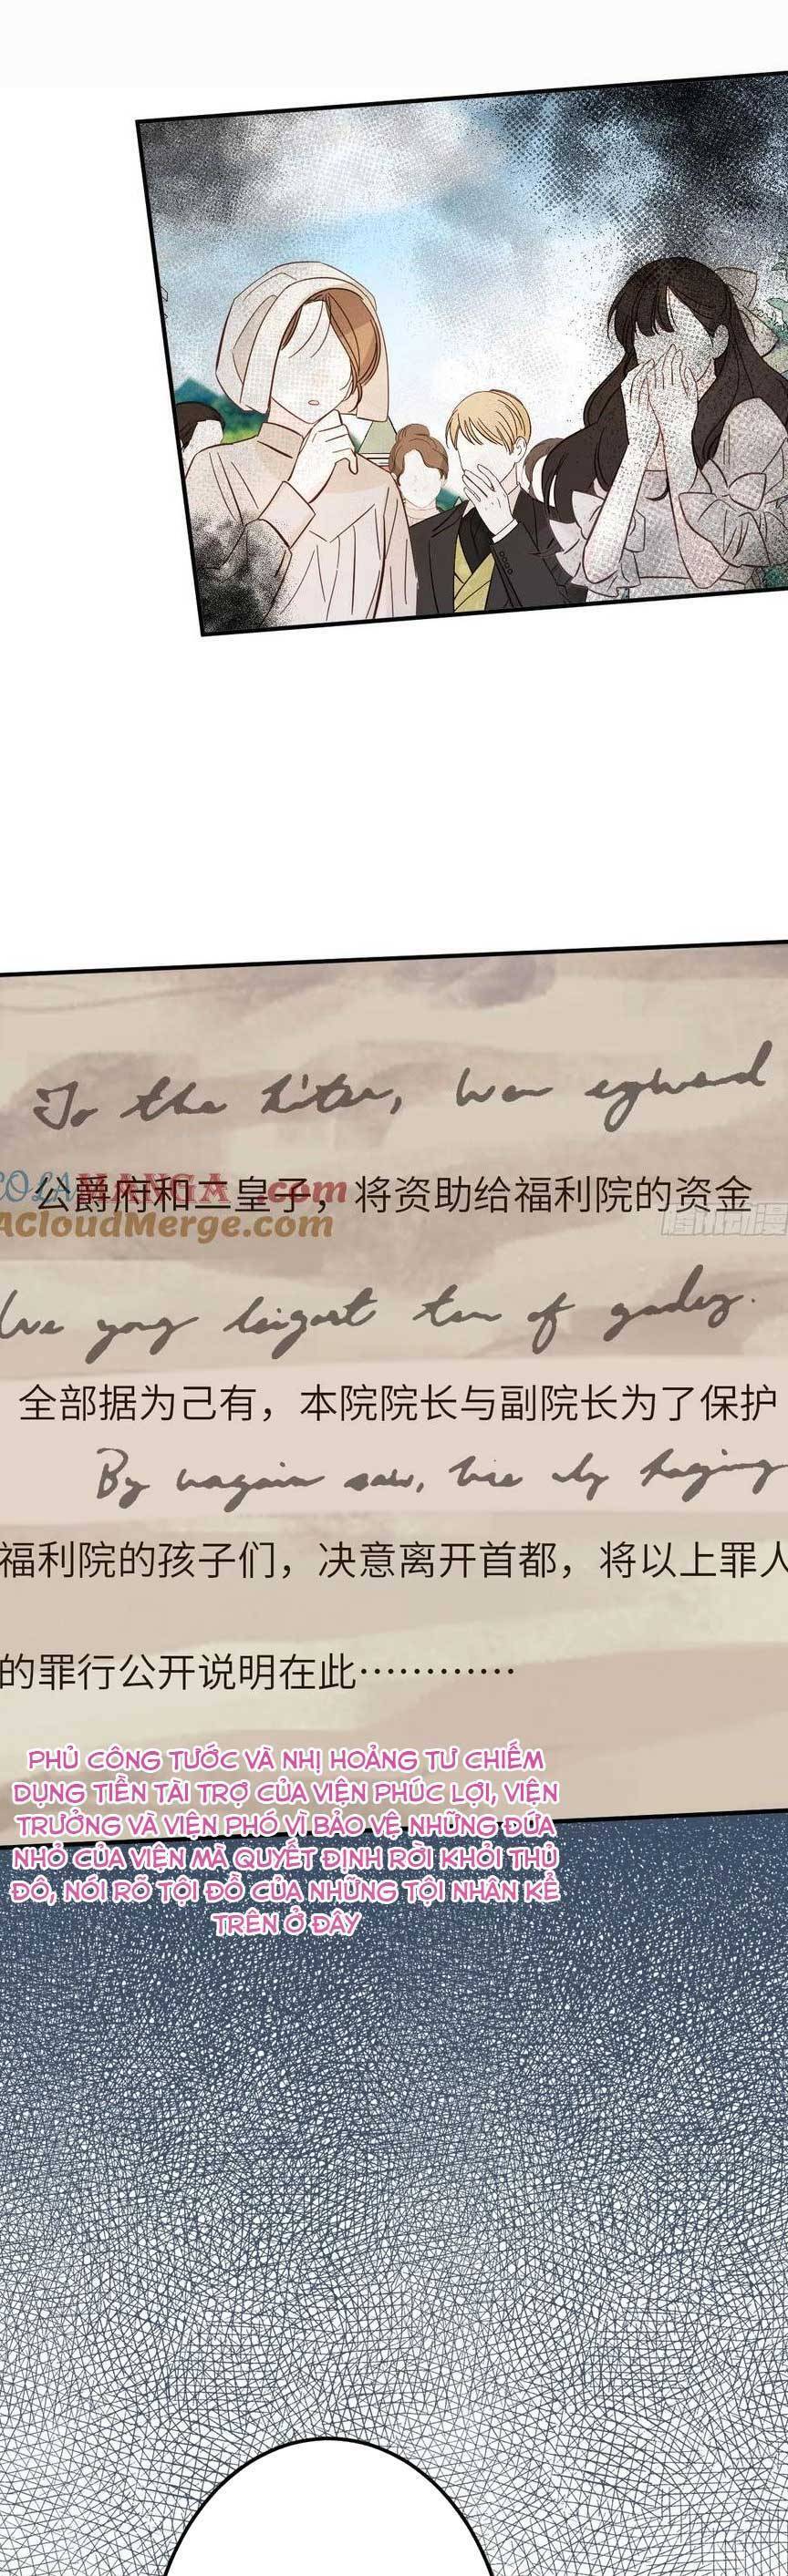 To the
公爵府和二皇子，将资助给福利院的资金
COLAMANGA.com
AcloudMerge.com
腾讯动漫
of
全部据为己有，本院院长与副院长为了保护
By
福利院的孩子们，决意离开首都，将以上罪人
的罪行公开说明在此…………
PHỦ CÔNG TƯỚC VÀ NHỊ HOẢNG TƯ CHIẾM
DỤNG TIỀN TÀI TRỢ CỦA VIỆN PHÚC LỢI, VIỆN
TRƯỞNG VÀ VIỆN PHÓ VÌ BẢO VỆ NHỮNG ĐỨA
NHỎ CỦA VIỆN MÀ QUYẾT ĐỊNH RỜI KHỎI THỦ
ĐÔ, NÓI RÕ TỘI ĐỒ CỦA NHỮNG TỘI NHÂN KỂ
TRÊN Ở ĐÂY